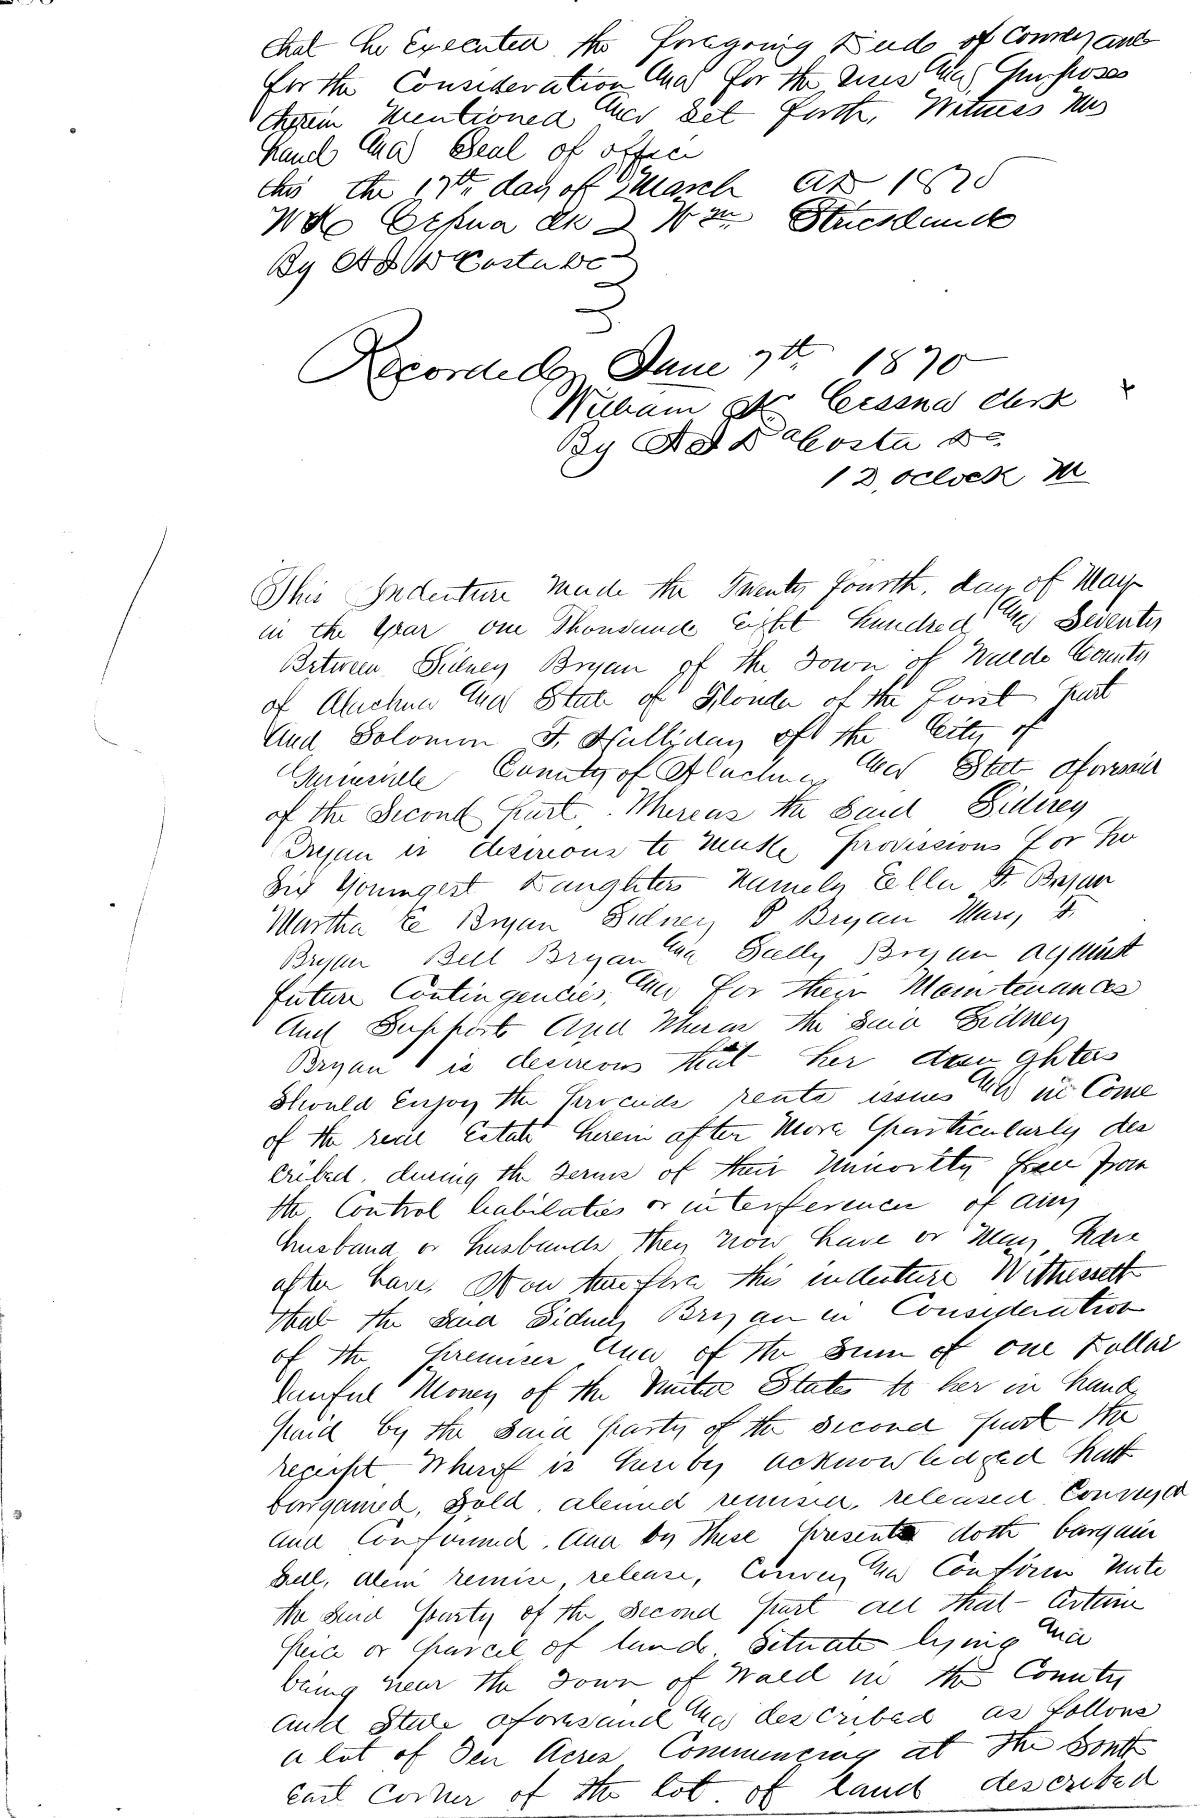 that he Executed the foregoing Deed of Conveyance
for the Consideration and for the uses and purposes
therein mentioned and set forth, Witness my
hand and Seal of office
this the 17th day of March AD 1870
Wm Strickland
By A J DaCosta DC
Recorded June 7th 1870
William K Cessna Clerk
By A J DaCosta DC
12, oclock M
This Indenture made the Twenty fourth, day of May
in the year one Thousand Eight hundred and Seventy
Between Sidney Bryan of the Town of Waldo County
of Alachua and State of Florida of the first part
And Solomon F. Halliday of the City of
Gainsville County of Alachua and State aforesaid
of the Second part, Whereas the said Sidney
Bryan is desirious to make provissions for her
Six Youngest Daughters namely Ella F. Bryan
Martha E Bryan Sidney P Bryan Mary F.
Bryan Bell Bryan and Sally Bryan against
future Contingencies, and for their Maintenances
And Support And Wheras the said Sidney
Bryan is desireous that her daughters
Should Enjoy the proceeds rents issues and in Come
of the real Estate herein after more particularly des
cribed, during the Terms of their Minority free from
the Control liabilaties or interferences of any
husband or husbands they now have or may here
after have, Now therefore this indenture Witnesseth
that the said Sidney Bryan in Consideration
of the premises and of the Sum of one Dollar
lawful Money of the United States to her in hand
paid by the said party of the second part the
receipt Wherof is hereby acknowledged hath
bargained, Sold, aliened remised, released Conveyed
and Confirmed, and by these presents doth bargain
Sell, alien remise, release, Convey and Confirm unto
the said party of the second part all that certain
peice or parcel of land, Situate lying and
being near the Town of Wald in the County
and State aforesaid and described as follows
a lot of Ten Acres Commencing at the South
East Corner of the lot of land described